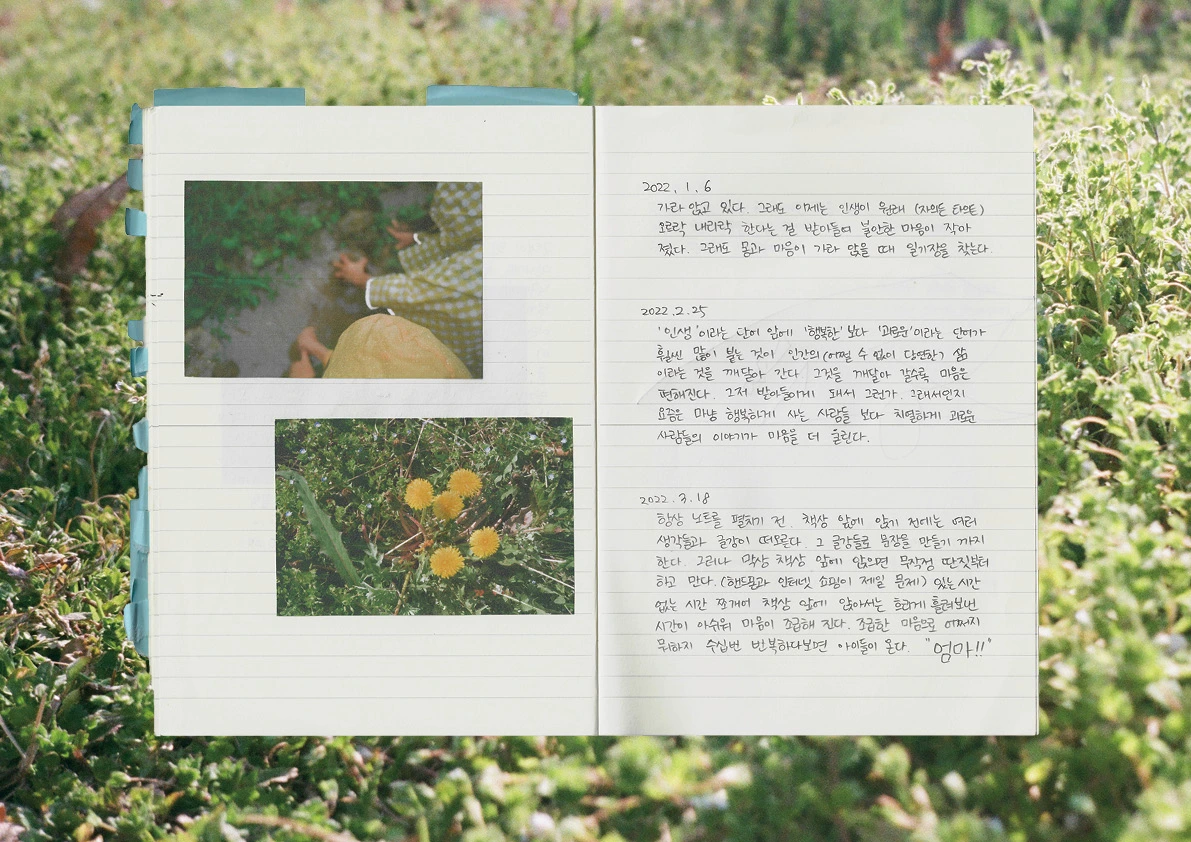 2022. 1. 6
가라 앉고 있다. 그래도 이제는 인생이 원래 (자의든 타의든)
오르락 내리락 한다는 걸 받아들여 불안한 마음이 작아
졌다. 그래도 몸과 마음이 가라 앉을 때 일기장을 찾는다.
2022. 2. 25
'인생'이라는 단어 앞에 '행복한' 보다 '괴로운'이라는 단어가
훨씬 많이 붙는 것이 인간의 (어쩔 수 없이 당연한) 삶
이라는 것을 깨달아 간다. 그것을 깨달아 갈수록 마음은
편해진다. 그저 받아들이게 돼서 그런가. 그래서인지
요즘은 마냥 행복하게 사는 사람들 보다 치열하게 괴로운
사람들의 이야기가 마음을 더 울린다.
2022. 3. 18
항상 노트를 펼치기 전. 책상 앞에 앉기 전에는 여러
생각들과 글감이 떠오른다. 그 글감들로 문장을 만들기 까지
한다. 그러나 막상 책상 앞에 앉으면 무작정 딴짓부터
하고 만다. (핸드폰과 인터넷 쇼핑이 제일 문제) 있는 시간
없는 시간 쪼개어 책상 앞에 앉아서는 흐리게 흘려보낸
시간이 아쉬워 마음이 조급해 진다. 조급한 마음으로 어쩌지
뭐하지 수십번 반복하다보면 아이들이 온다. "엄마!!"